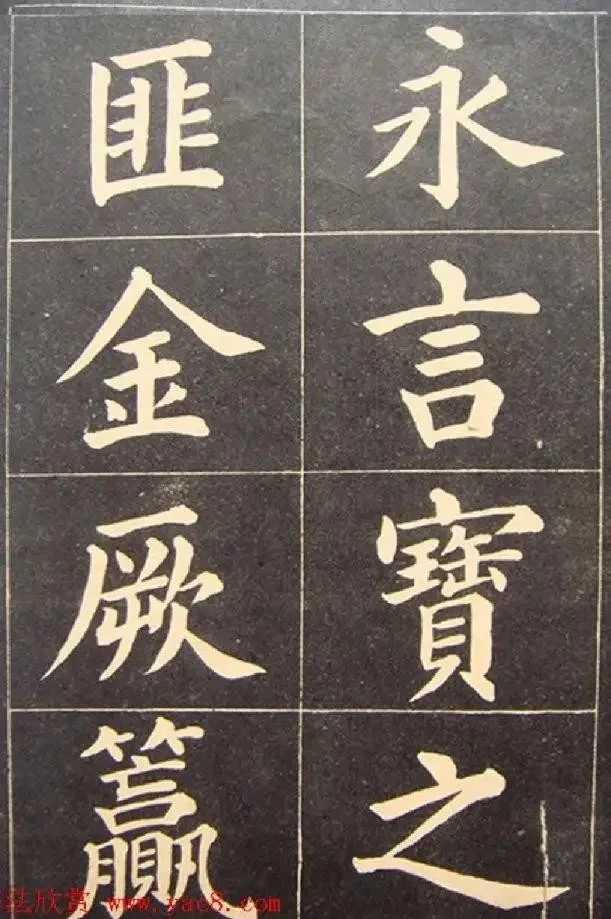 永言寶之
匪金厥籯
法欣赏 www.yac8.com